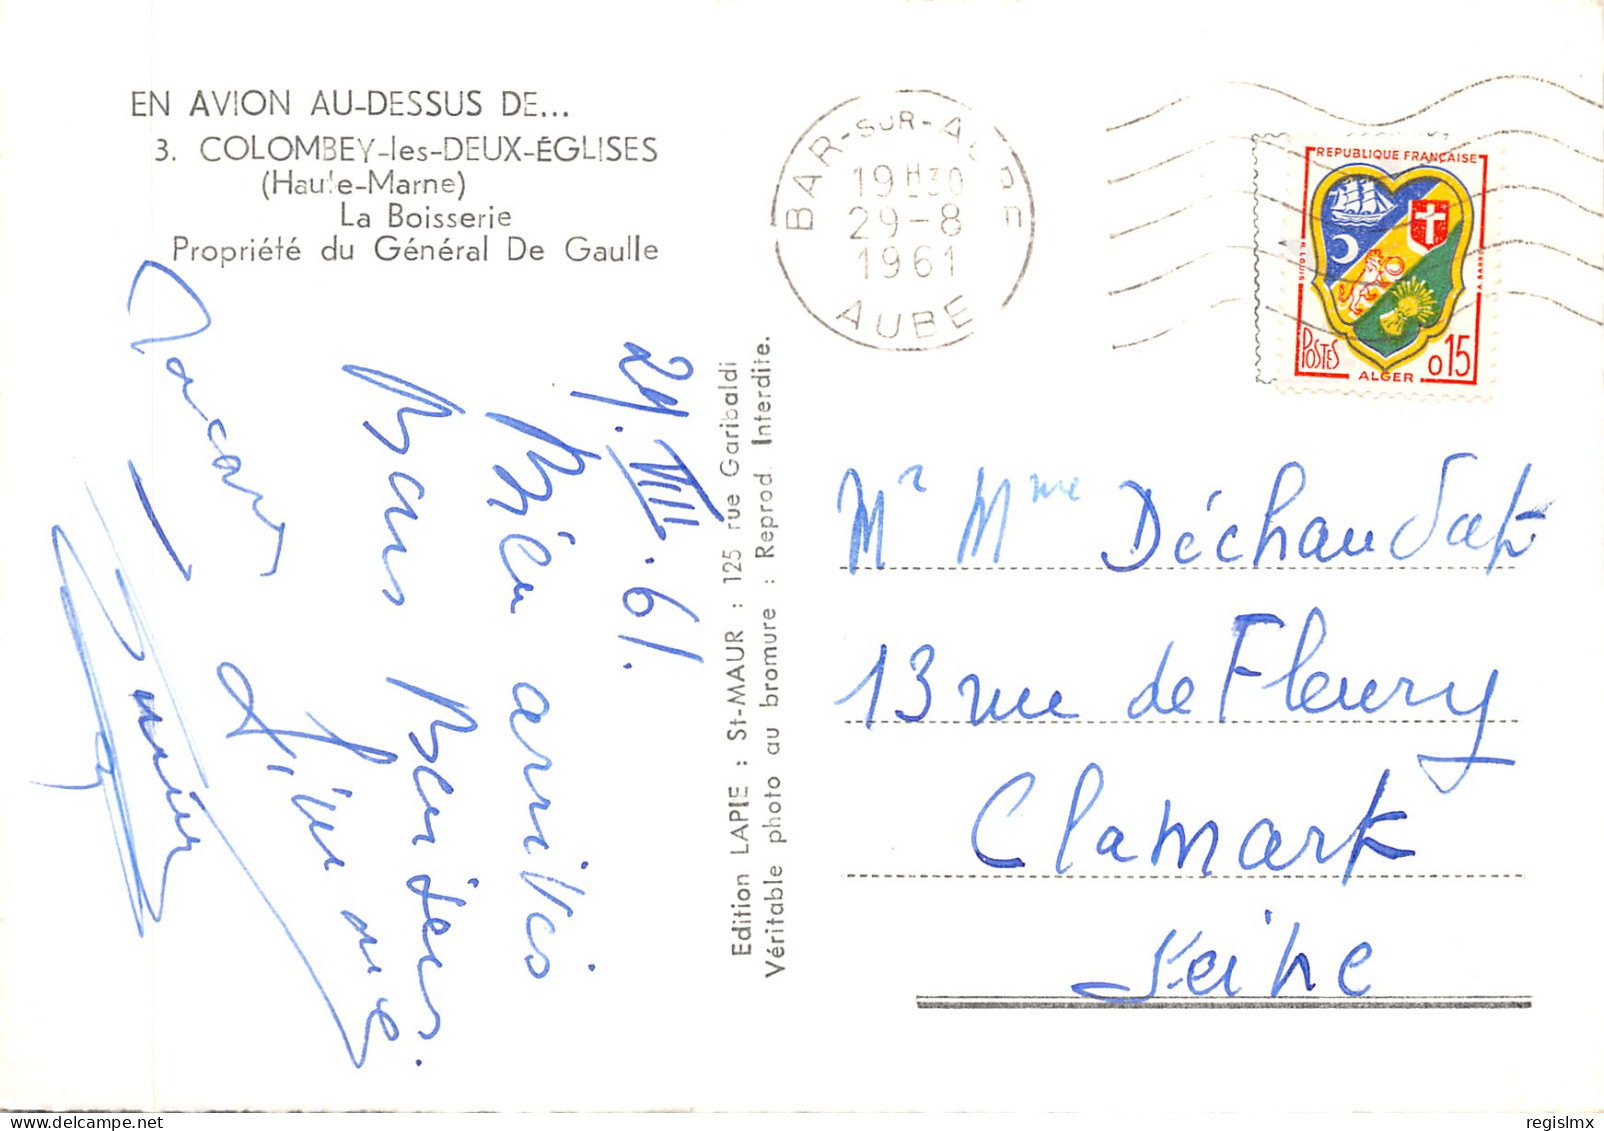 EN AVION AU-DESSUS DE...
3. COLOMBEY-les-DEUX-ÉGLISES
(Haute-Marne)
La Boisserie
Propriété du Général De Gaulle
BAR-SUR-AUBE
19H30
29-8
1961
AUBE
REPUBLIQUE FRANÇAISE
POSTES
ALGER
0,15
Edition LAPIE : St-MAUR : 125 rue Garibaldi
Véritable photo au bromure : Reprod. Interdite.
29.VIII.61.
Bien arrivés
Bons baisers
Mr Mme Déchaudat
13 rue de Fleury
Clamart
Seine
regislmx